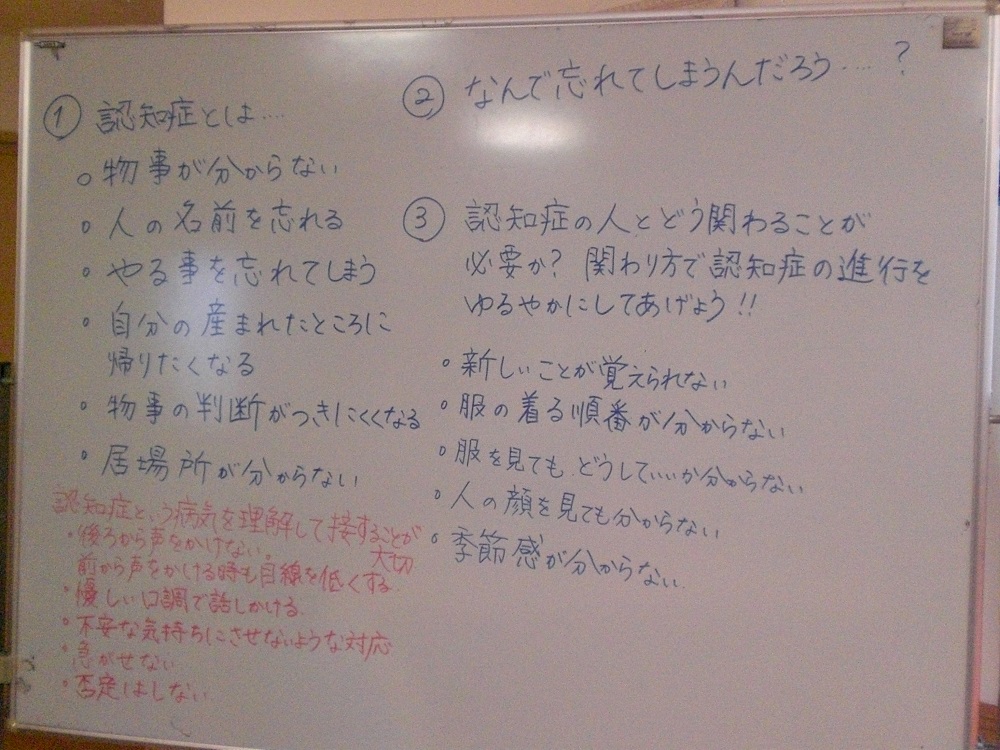 ① 認知症とは‥‥
○ 物事が分からない
○ 人の名前を忘れる
○ やる事を忘れてしまう
○ 自分の産まれたところに
帰りたくなる
○ 物事の判断がつきにくくなる
○ 居場所が分からない
認知症という病気を理解して接することが
大切
・後ろから声をかけない。
前から声をかける時も目線を低くする
・優しい口調で話しかける
・不安な気持ちにさせないような対応
・急がせない
・否定はしない
② なんで忘れてしまうんだろう‥‥?
③ 認知症の人とどう関わることが
必要か? 関わり方で認知症の進行を
ゆるやかにしてあげよう!!
○ 新しいことが覚えられない
○ 服の着る順番が分からない
○ 服を見てもどうしていいか分からない
○ 人の顔を見ても分からない
○ 季節感が分からない